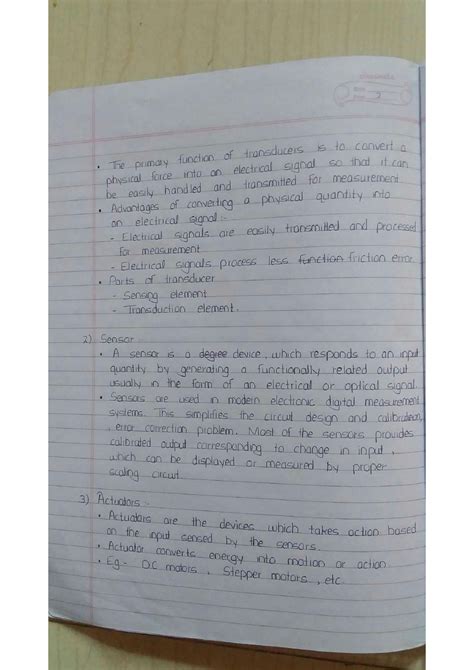 classmate
Date
Page
• The primary function of transducers is to convert a
physical force into an electrical signal so that it can
be easily handled and transmitted for measurement
• Advantages of converting a physical quantity into
an electrical signal :-
- Electrical signals are easily transmitted and processed
for measurement
- Electrical signals process less function friction error.
• Parts of transducer
- Sensing element
- Transduction element.
2) Sensor
• A sensor is a degree device, which responds to an input
quantity by generating a functionally related output
usually in the form of an electrical or optical signal.
• Sensors are used in modern electronic digital measurement
systems. This simplifies the circuit design and calibration
, error correction problem. Most of the sensors provides
calibrated output corresponding to change in input,
which can be displayed or measured by proper
scaling circuit.
3) Actuators :-
• Actuators are the devices which takes action based
on the input sensed by the sensors.
• Actuator converts energy into motion or action
• Eg - D.C motors, Stepper motors, etc